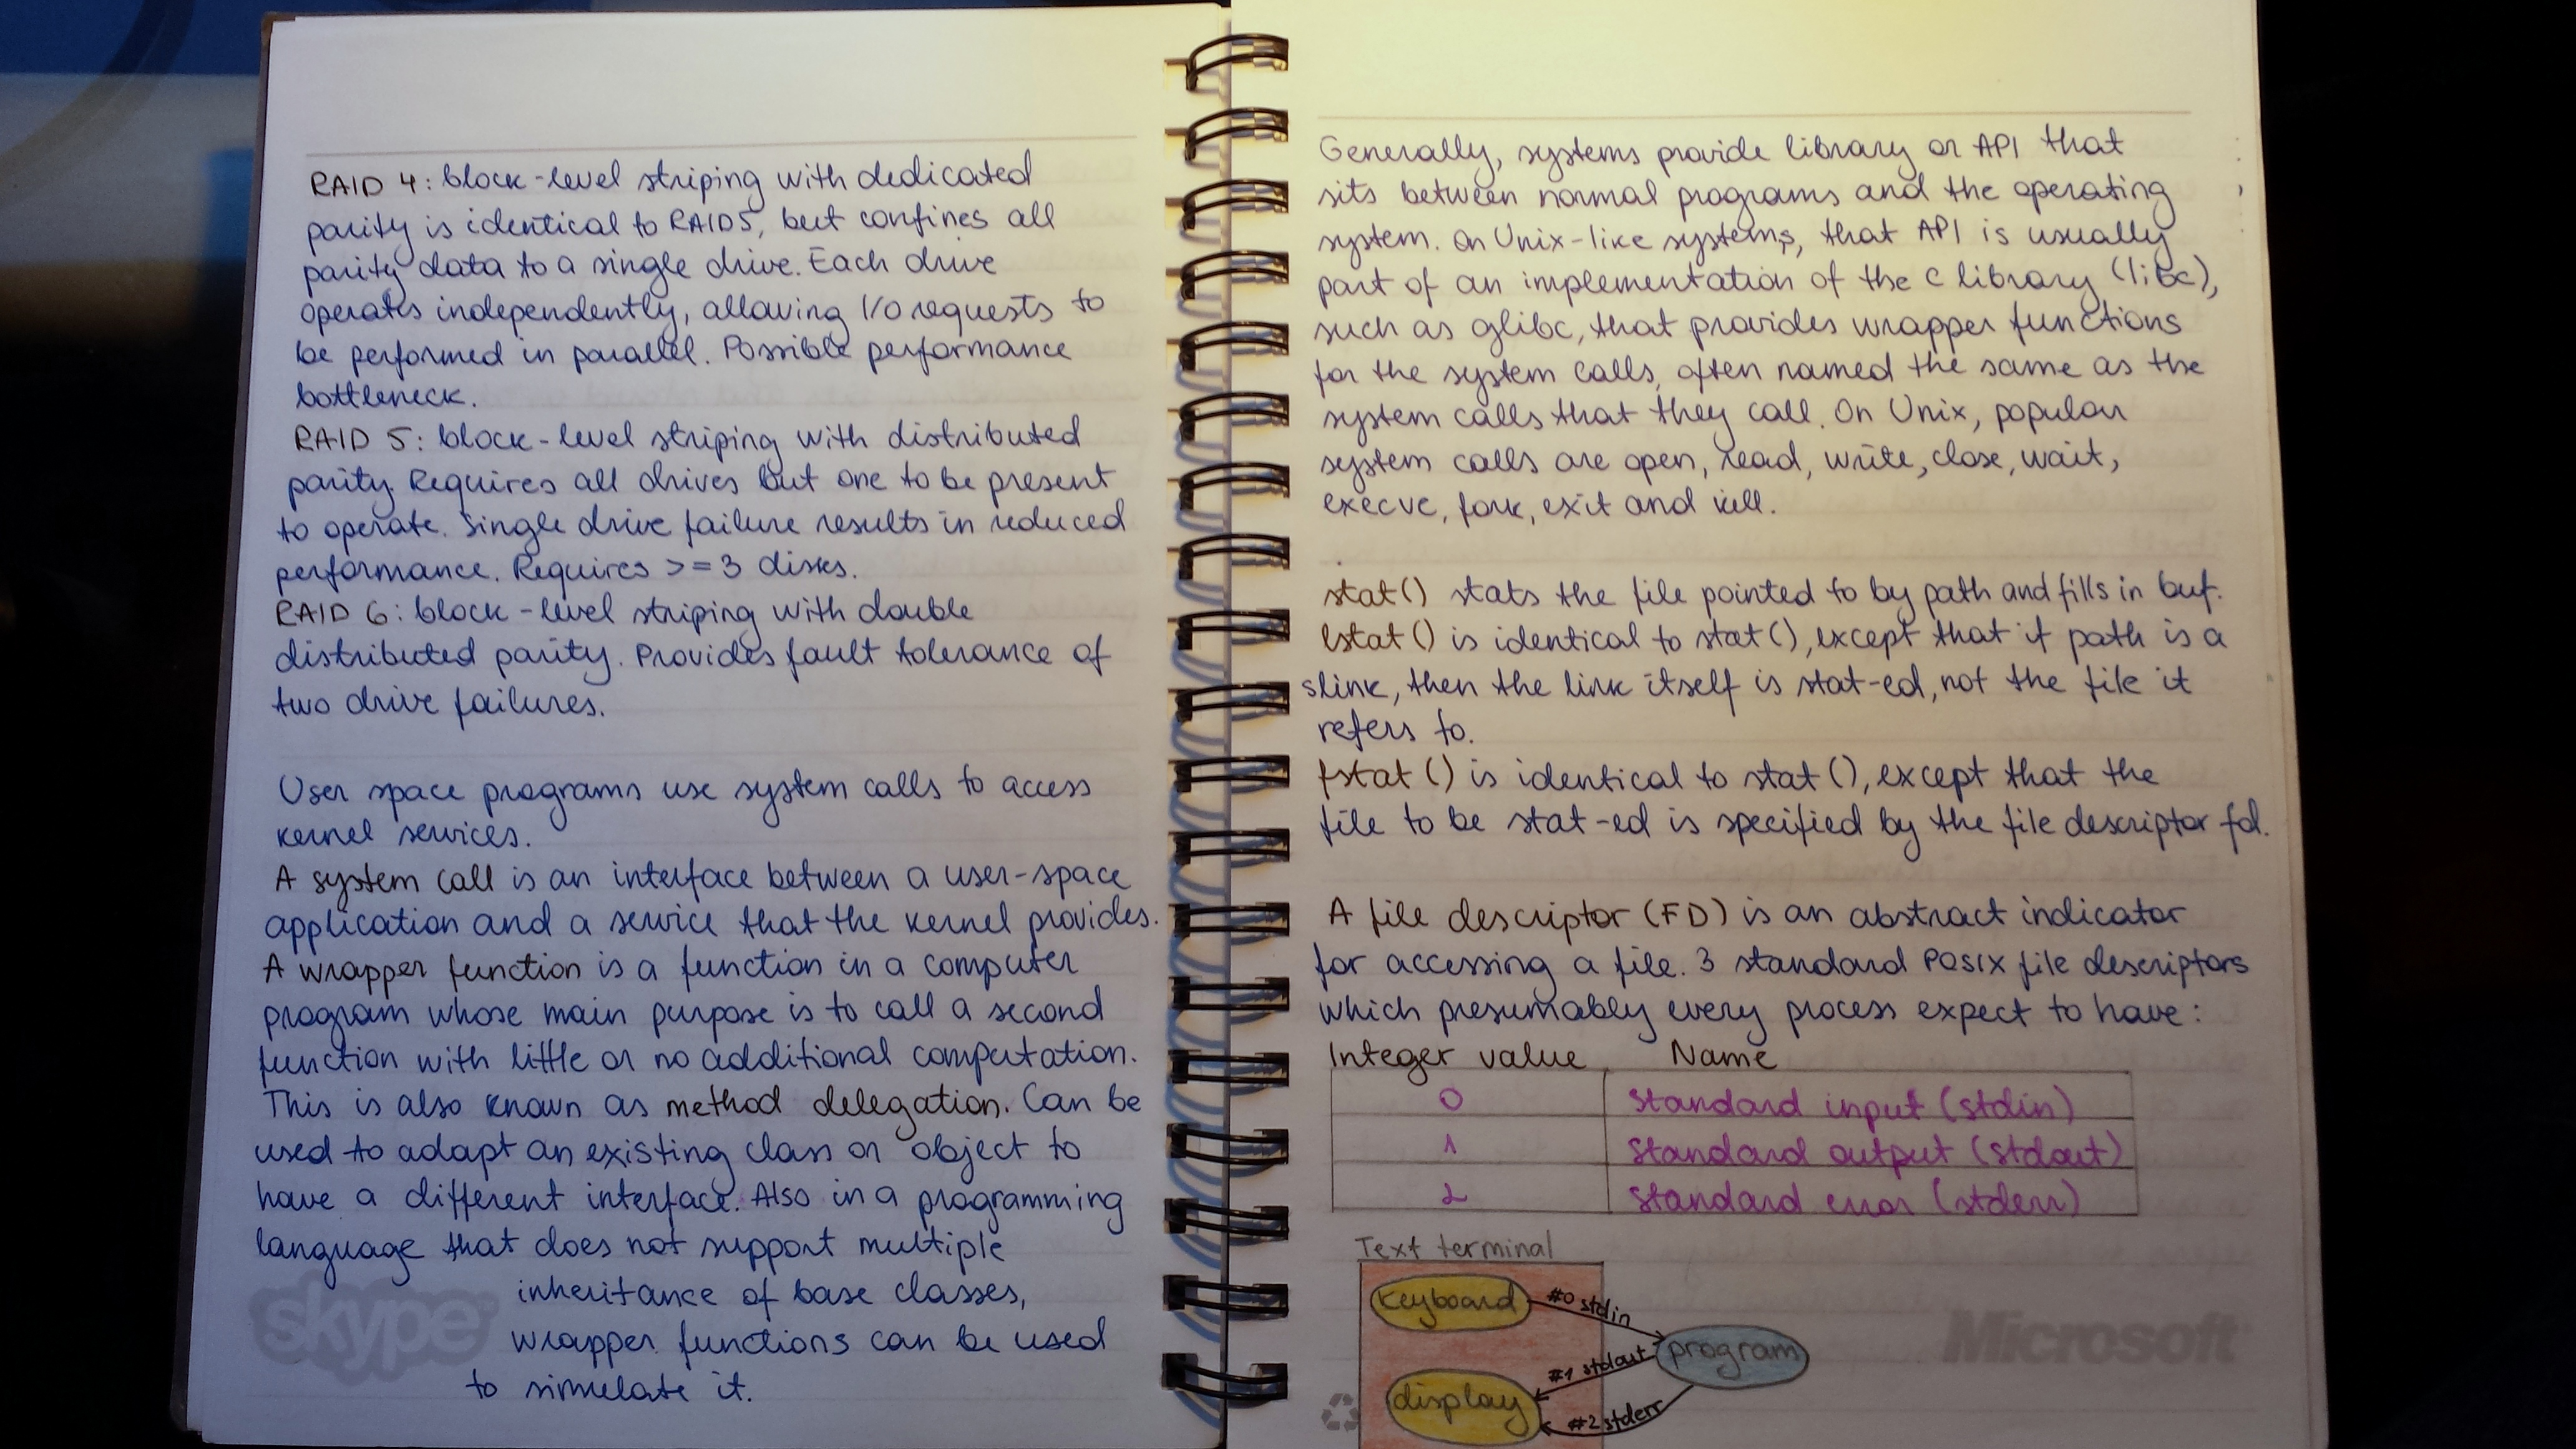 RAID 4: block-level striping with dedicated
parity is identical to RAID5, but confines all
parity data to a single drive. Each drive
operates independently, allowing I/O requests to
be performed in parallel. Possible performance
bottleneck.
RAID 5: block-level striping with distributed
parity. Requires all drives but one to be present
to operate. Single drive failure results in reduced
performance. Requires >=3 disks.
RAID 6: block-level striping with double
distributed parity. Provides fault tolerance of
two drive failures.
User space programs use system calls to access
kernel services.
A system call is an interface between a user-space
application and a service that the kernel provides.
A wrapper function is a function in a computer
program whose main purpose is to call a second
function with little or no additional computation.
This is also known as method delegation. Can be
used to adapt an existing class or object to
have a different interface. Also in a programming
language that does not support multiple
inheritance of base classes,
wrapper functions can be used
to simulate it.
skype
Generally, systems provide library or API that
sits between normal programs and the operating
system. On Unix-like systems, that API is usually
part of an implementation of the C library (libc),
such as glibc, that provides wrapper functions
for the system calls, often named the same as the
system calls that they call. On Unix, popular
system calls are open, read, write, close, wait,
execve, fork, exit and kill.
stat() stats the file pointed to by path and fills in buf.
lstat() is identical to stat(), except that if path is a
slink, then the link itself is stat-ed, not the file it
refers to.
fstat() is identical to stat(), except that the
file to be stat-ed is specified by the file descriptor fd.
A file descriptor (FD) is an abstract indicator
for accessing a file. 3 standard POSIX file descriptors
which presumably every process expect to have:
Integer value Name
0 Standard input (stdin)
1 Standard output (stdout)
2 Standard error (stderr)
Text terminal
keyboard
#0 stdin
program
#1 stdout
display
#2 stderr
Microsoft